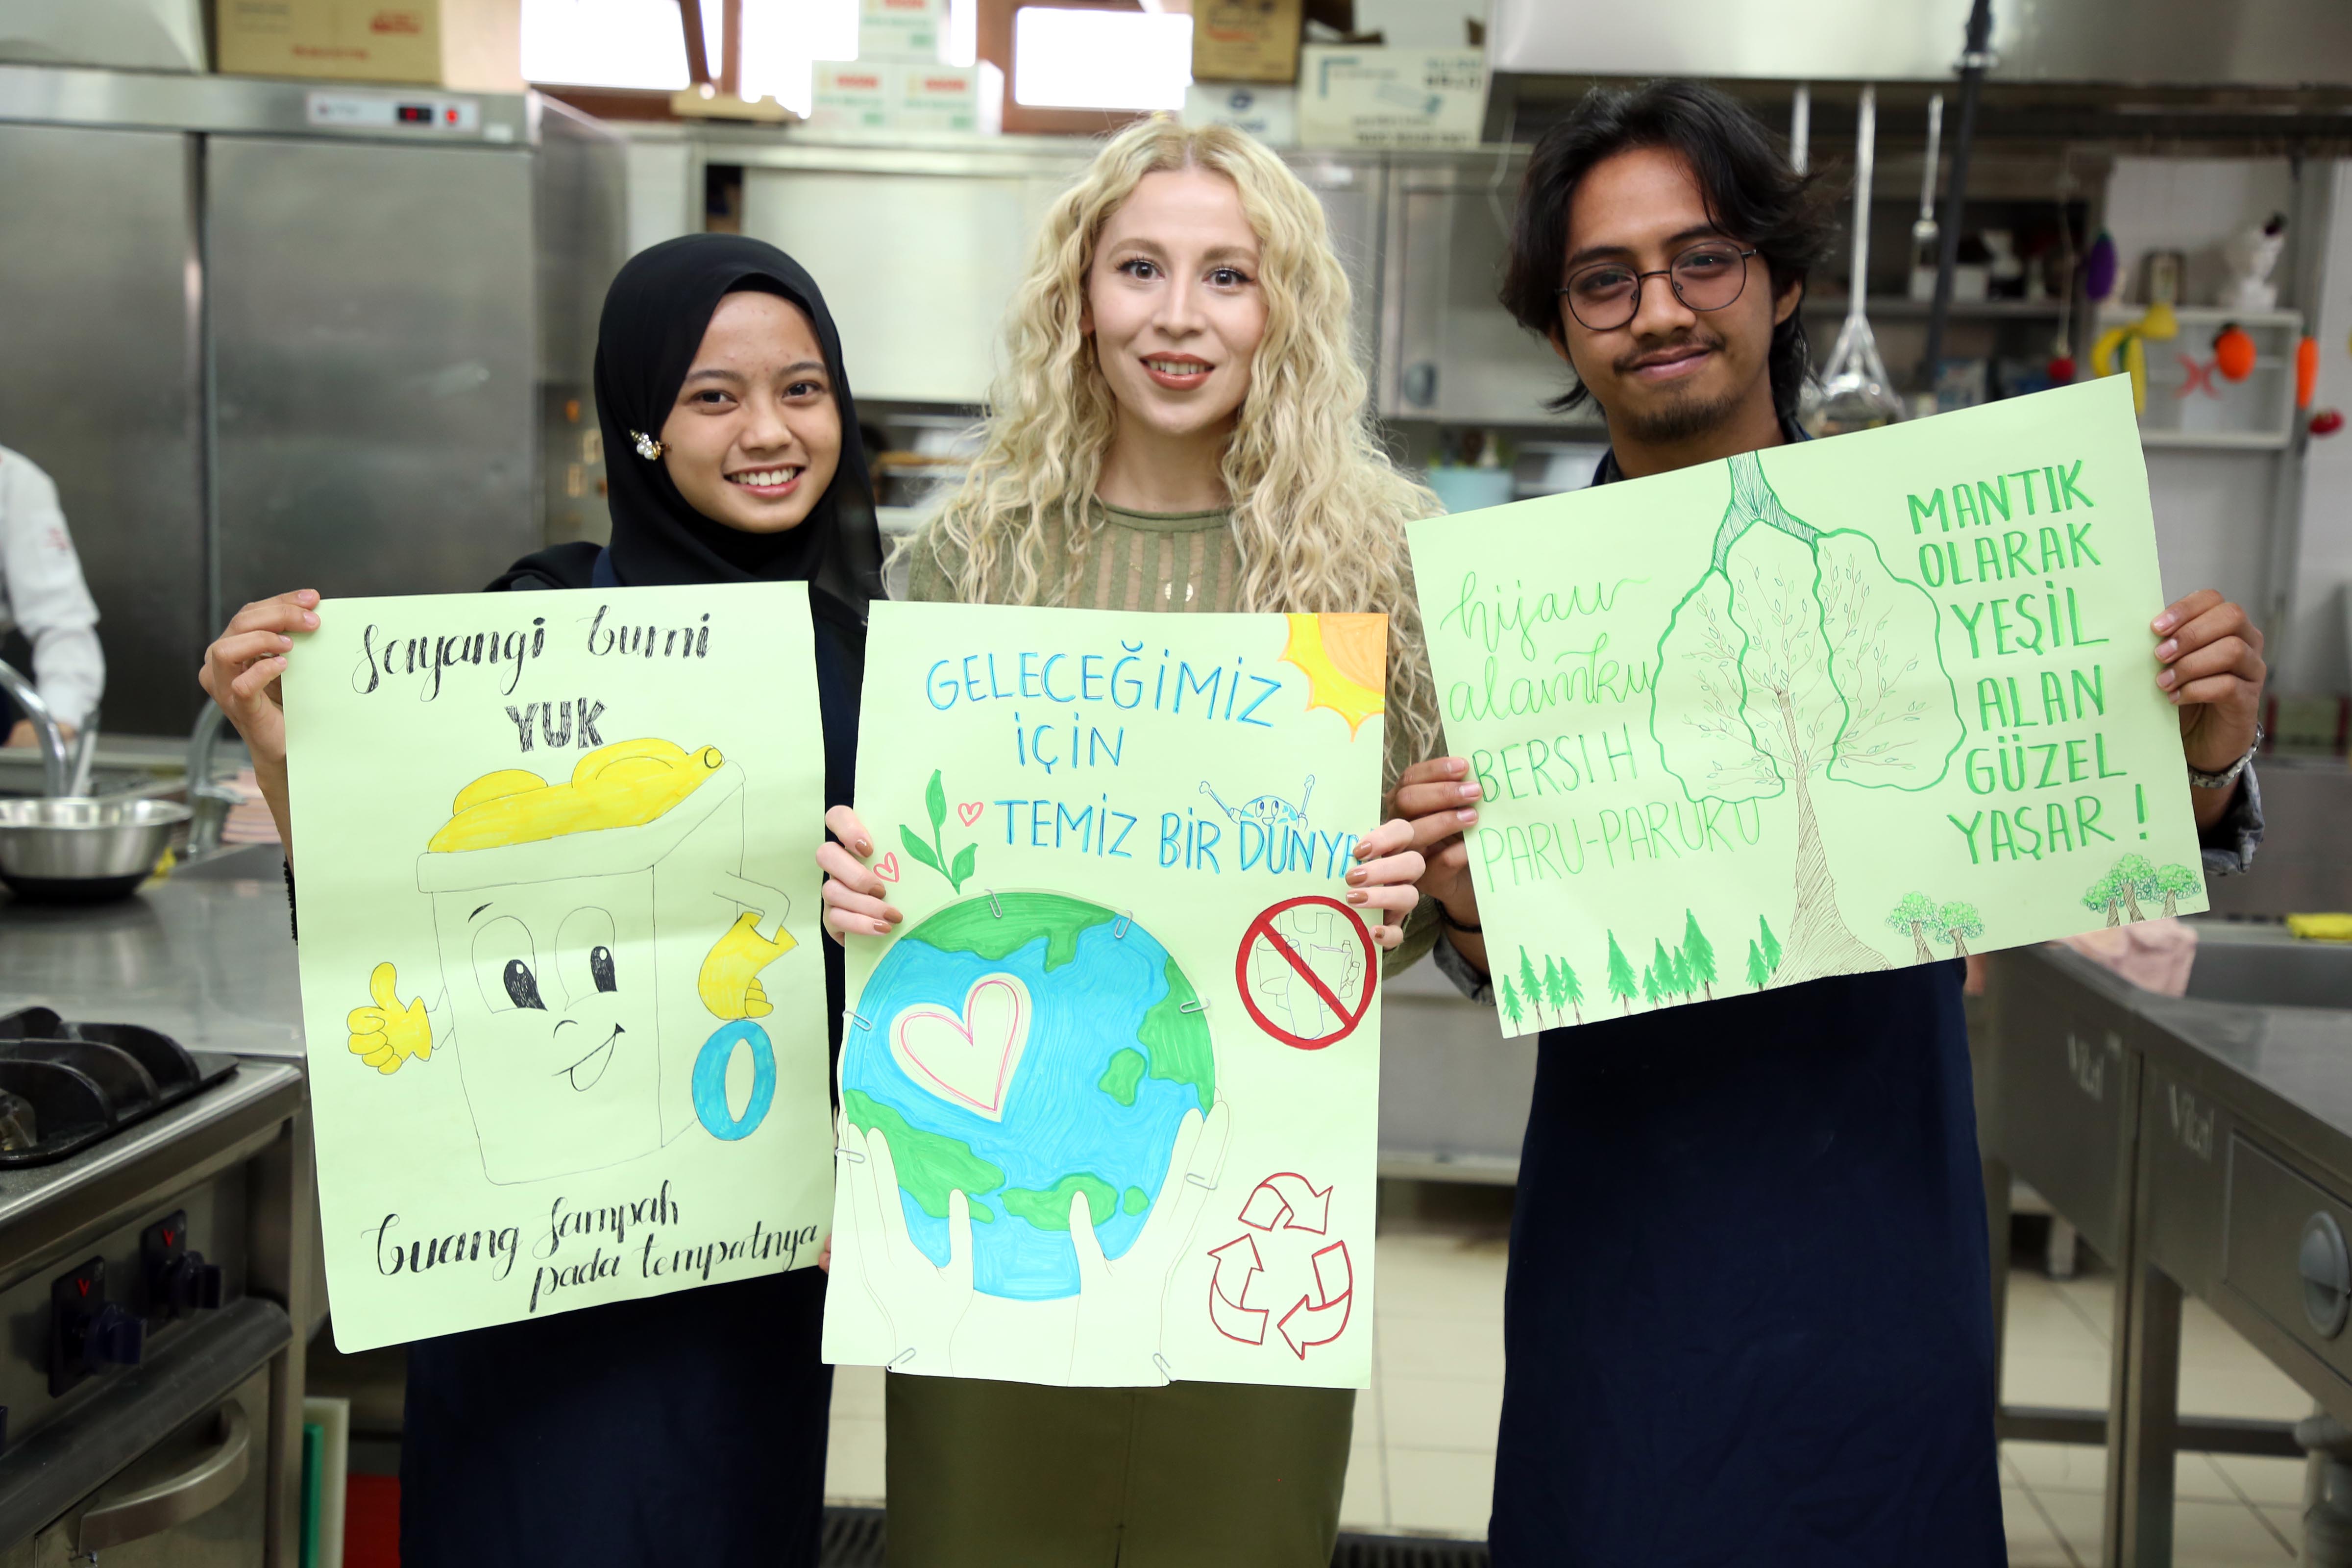 Sayangi bumi
YUK
buang sampah
pada tempatnya
GELECEĞİMİZ
İÇİN
TEMİZ BİR DÜNYA
hijau
alamku
BERSIH
PARU-PARUKU
MANTIK
OLARAK
YEŞİL
ALAN
GÜZEL
YAŞAR !